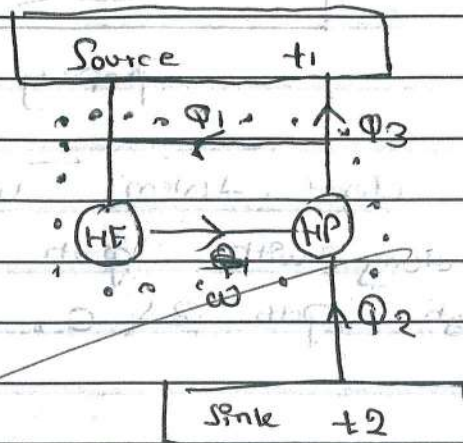 Source t1
Q1 Q3
HE HP
ω
Q2
Sink t2